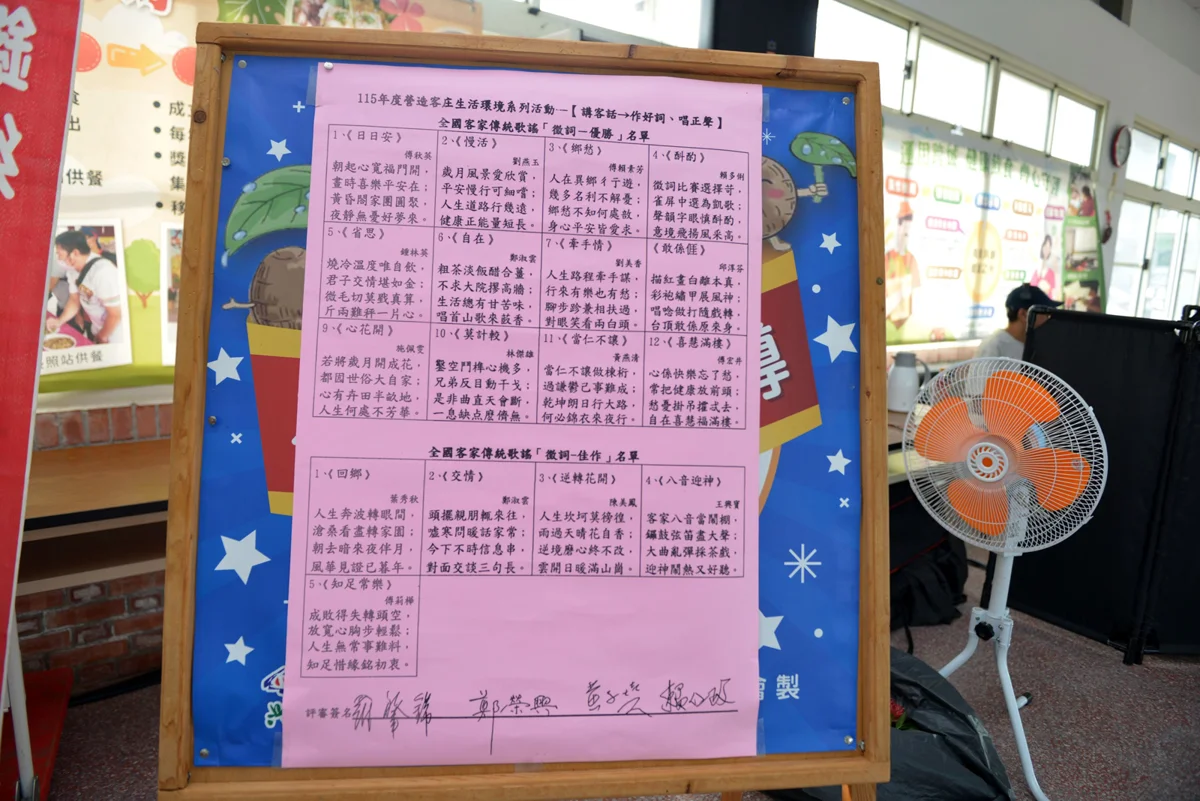 115年度營造客庄生活環境系列活動--【講客話→作好詞、唱正聲】
全國客家傳統歌謠「徵詞-優勝」名單
1、《日日安》
傅秋英
朝起心寬福門開，
晝時喜樂平安在；
黃昏闔家團圓聚，
夜靜無憂好夢來。
2、《慢活》
劉燕玉
歲月風景愛欣賞，
平安慢行可細嚐；
人生道路行幾遠，
健康正能量短長。
3、《鄉愁》
傅賴素芳
人在異鄉彳亍遊，
幾多名利不解憂；
鄉愁不知何處放，
身心平安皆愛求。
4、《斟酌》
賴多俐
徵詞比賽選擇苛，
雀屏中選為凱歌；
聲韻字眼慎斟酌，
意境飛揚風采高，
5、《省思》
鍾林英
燒冷溫度唯自飲，
君子交情堪如金；
微毛切莫戥真算，
斤兩難秤一片心。
6、《自在》
鄭淑雲
粗茶淡飯醋合薑，
不求大院撐高牆；
生活總有甘苦味，
唱首山歌來藙香。
7、《牽手情》
劉美香
人生路程牽手謀，
行來有樂也有愁；
腳步跈兼相扶過，
對眼笑看兩白頭。
《敢係𠊎》
邱淳芬
描紅畫白離本真，
彩袍繡甲展風神；
唱唸做打隨戲轉，
台頂敢係原來身。
9、《心花開》
施佩雯
若將歲月開成花，
都囥世俗大自家；
心有弁田半畝地，
人生何處不芳華。
10、《莫計較》
林傑雄
鑿空鬥榫心機多，
兄弟反目動干戈；
是非曲直天會斷，
一息缺点麼儕無。
11、《當仁不讓》
黃燕清
當仁不讓做棟桁，
過謙鬱己事難成；
乾坤朗日行大路，
何必錦衣來夜行。
12、《喜慧滿樓》
傅宏井
心係快樂忘了愁，
常把健康放前頭；
愁憂掛吊擐忒去，
自在喜慧福滿樓。
全國客家傳統歌謠「徵詞-佳作」名單
1、《回鄉》
葉秀秋
人生奔波轉眼間，
滄桑看盡轉家園；
朝去暗來夜伴月，
風華見證已暮年。
2、《交情》
鄭淑雲
頭擺親朋輒來往，
噓寒問暖話家常；
今下不時信息串，
對面交談三句長。
3、《逆轉花開》
陳美鳳
人生坎坷莫徬徨，
雨過天晴花自香；
逆境磨心終不改，
雲開日暖滿山崗。
4、《八音迎神》
王興寶
客家八音當鬧棚，
鑼鼓弦笛盡大聲；
大曲亂彈採茶戲，
迎神鬧熱又好聽。
5、《知足常樂》
傅莉樺
成敗得失轉頭空，
放寬心胸步輕鬆；
人生無常事難料，
知足惜緣銘初衷。
評審簽名
鄭榮興
會製
照站供餐
供餐